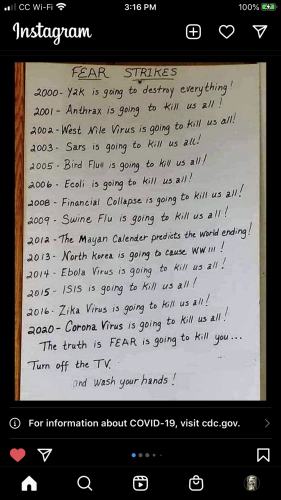 CC Wi-Fi 3:16 PM 100%
Instagram
FEAR STRIKES
2000- Y2k is going to destroy everything!
2001 - Anthrax is going to kill us all!
2002-West Nile Virus is going to kill us all!
2003- Sars is going to kill us all!
2005- Bird Flu is going to kill us all!
2006- Ecoli is going to kill us all!
2008- Financial Collapse is going to kill us all!
2009- Swine Flu is going to kill us all!
2012-The Mayan Calender predicts the world ending!
2013- North korea is going to cause WW III!
2014- Ebola Virus is going to kill us all!
2015- ISIS is going to kill us all!
2016- Zika Virus is going to kill us all!
2020- Corona Virus is going to kill us all!
The truth is FEAR is going to kill you...
Turn off the TV.
and wash your hands!
For information about COVID-19, visit cdc.gov.